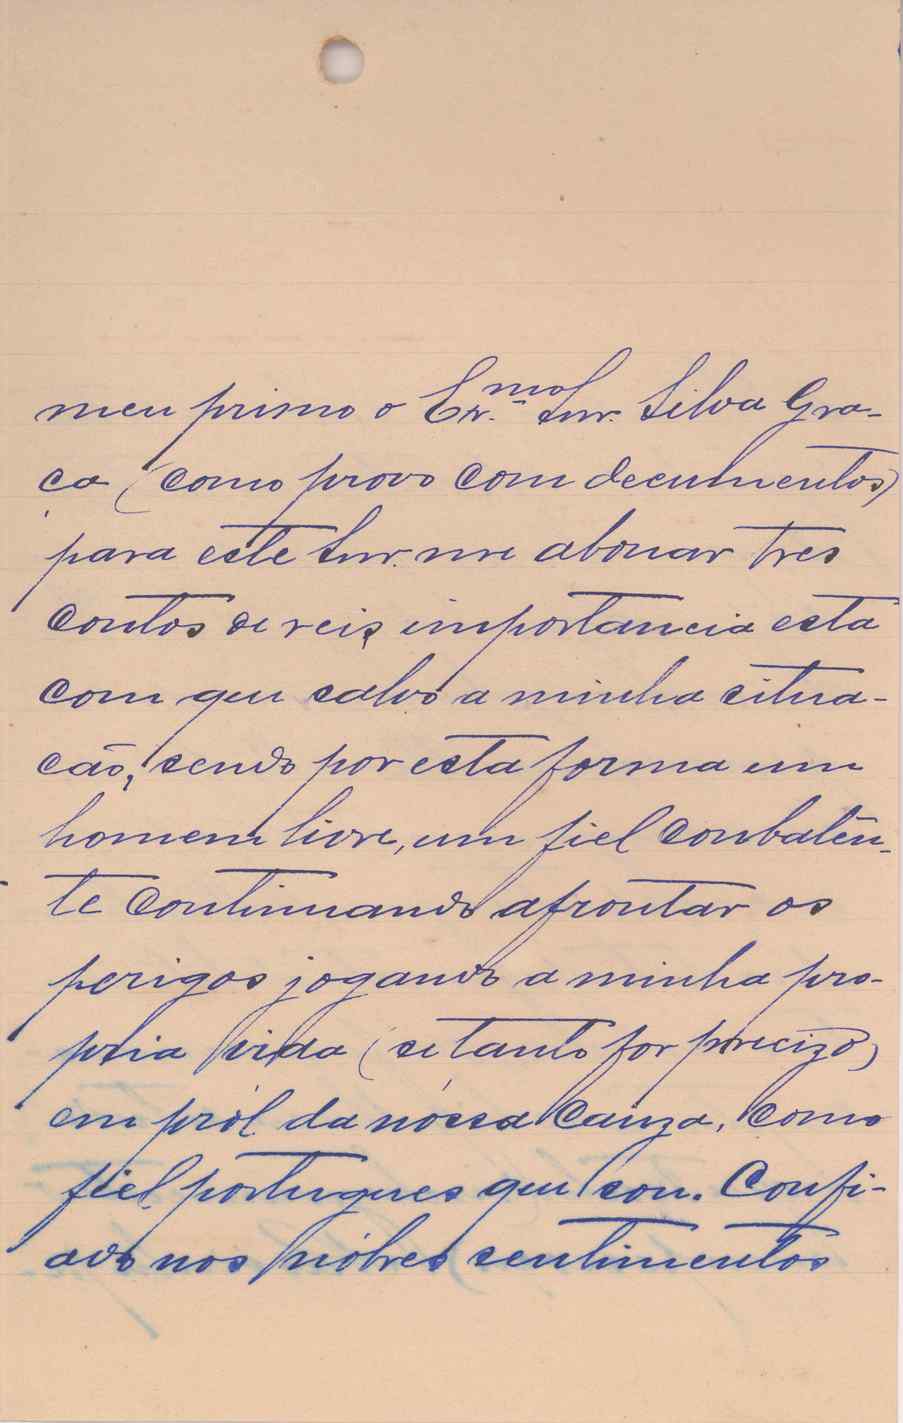 meu primo o Ex.mo Snr. Silva Gra-
ça (como provo com decumentos)
para este Snr. me abonar tres
contos de reis, importancia esta
com que salvo a minha situa-
cão, sendo por esta forma um
homem livre, um fiel conbatên-
te continuando afrontar os
perigos jogando a minha pro-
pria vida (se tanto for precizo)
em pról da nóssa Cauza, como
fiel portugues que sou. Confi-
ado nos nóbres sentimentos